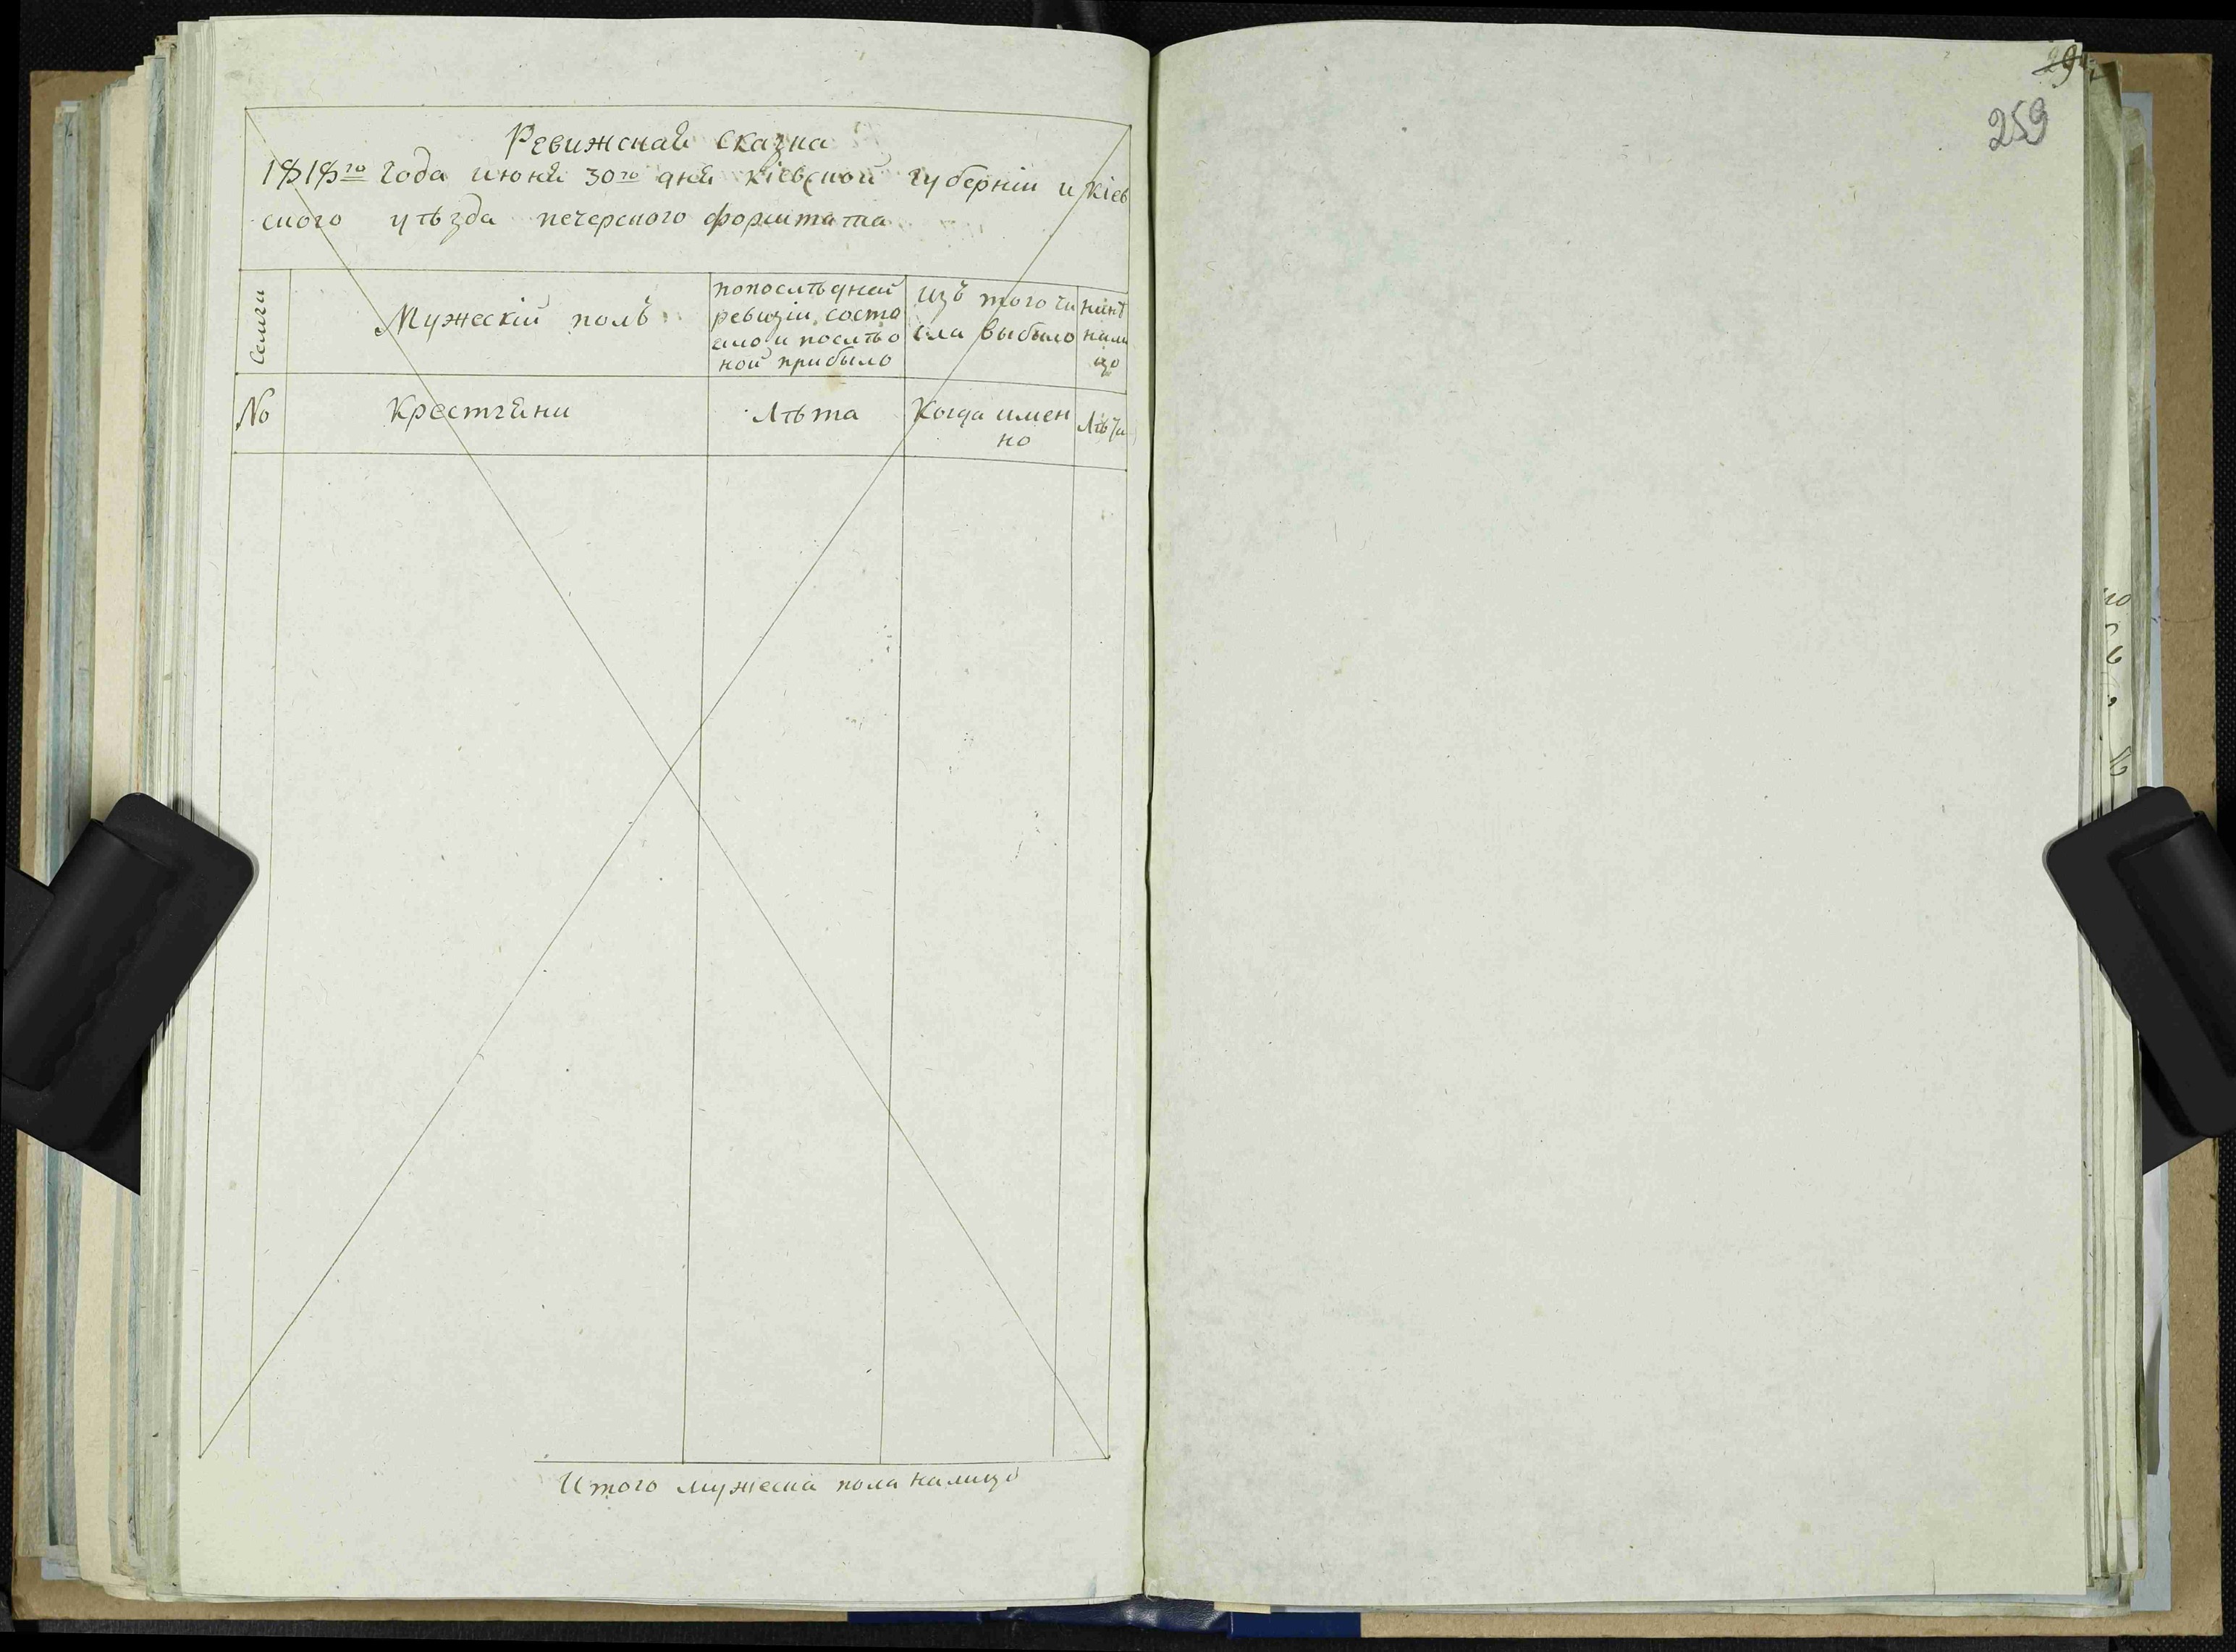 259
Ревижская Сказка
1818го года июня 30го дня кіевской губерніи и кіев
ского уѣзда печерского форштата
Семьи
Мужескій полъ
попослѣдней
ревизіи состо
яло и послѣ о
ной прибыло
изъ того чи
сла выбыло
нинѣ
нали
цо
No
Крестяни
Лѣта
Когда имен
но
Лѣта
Итого мужеска пола налицо